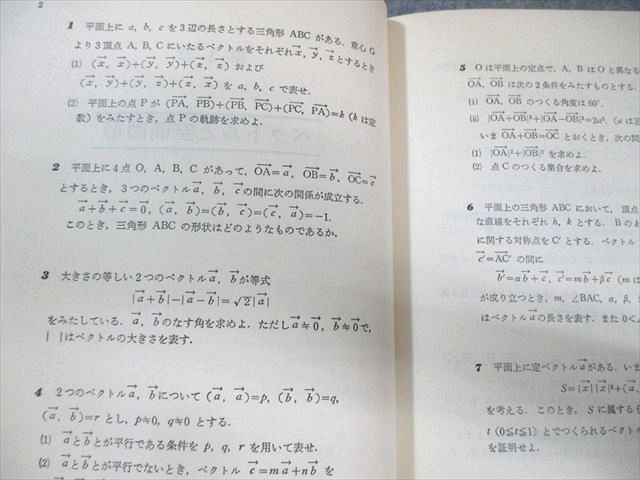 2
1 平面上に a, b, c を3辺の長さとする三角形 ABC がある. 重心 G
より3頂点 A, B, C にいたるベクトルをそれぞれ x⃗, y⃗, z⃗ とするとき
(1) (x⃗, x⃗)+(y⃗, y⃗)+(z⃗, z⃗) および
(x⃗, y⃗)+(y⃗, z⃗)+(z⃗, x⃗) を a, b, c で表せ.
(2) 平面上の点 P が (PA⃗, PB⃗)+(PB⃗, PC⃗)+(PC⃗, PA⃗)=k (k は定
数) をみたすとき, 点 P の軌跡を求めよ.
2 平面上に4点 O, A, B, C があって, OA⃗=a⃗, OB⃗=b⃗, OC⃗=c⃗
とするとき, 3つのベクトル a⃗, b⃗, c⃗ の間に次の関係が成立する.
a⃗+b⃗+c⃗=0⃗, (a⃗, b⃗)=(b⃗, c⃗)=(c⃗, a⃗)=−1.
このとき, 三角形 ABC の形状はどのようなものであるか.
3 大きさの等しい2つのベクトル a⃗, b⃗ が等式
|a⃗+b⃗|−|a⃗−b⃗|=√2|a⃗|
をみたしている. a⃗, b⃗ のなす角を求めよ. ただし a⃗≠0⃗, b⃗≠0⃗ で,
| | はベクトルの大きさを表す.
4 2つのベクトル a⃗, b⃗ について (a⃗, a⃗)=p, (b⃗, b⃗)=q,
(a⃗, b⃗)=r とし, p≠0, q≠0 とする.
(1) a⃗ と b⃗ とが平行である条件を p, q, r を用いて表せ.
(2) a⃗ と b⃗ とが平行でないとき, ベクトル c⃗=ma⃗+nb⃗ を
5 O は平面上の定点で, A, B は O と異なる
OA⃗, OB⃗ は次の2条件をみたすものとする.
(i) OA⃗, OB⃗ のつくる角度は 60°.
(ii) |OA⃗+OB⃗|²+|OA⃗−OB⃗|²=2a². (a は正
いま OA⃗+OB⃗=OC⃗ とおくとき, 次の問
(1) |OA⃗|²+|OB⃗|² を求めよ.
(2) 点 C のつくる集合を求めよ.
6 平面上の三角形 ABC において, 頂点
な直線をそれぞれ h, k とする. B の k
に関する対称点を C′ とする. ベクトル
c⃗′=AC⃗′ の間に
b⃗′=αb⃗+c⃗, c⃗′=mb⃗+βc⃗ (m は
が成り立つとき, m, ∠BAC, α, β,
はベクトル a⃗ の長さを表す. また 0<
7 平面上に定ベクトル a⃗ がある. いま
S={x⃗||x⃗|²+(a⃗,
を考える. このとき, S に属する
t (0≦t≦1) とでつくられるベクトル
を証明せよ.